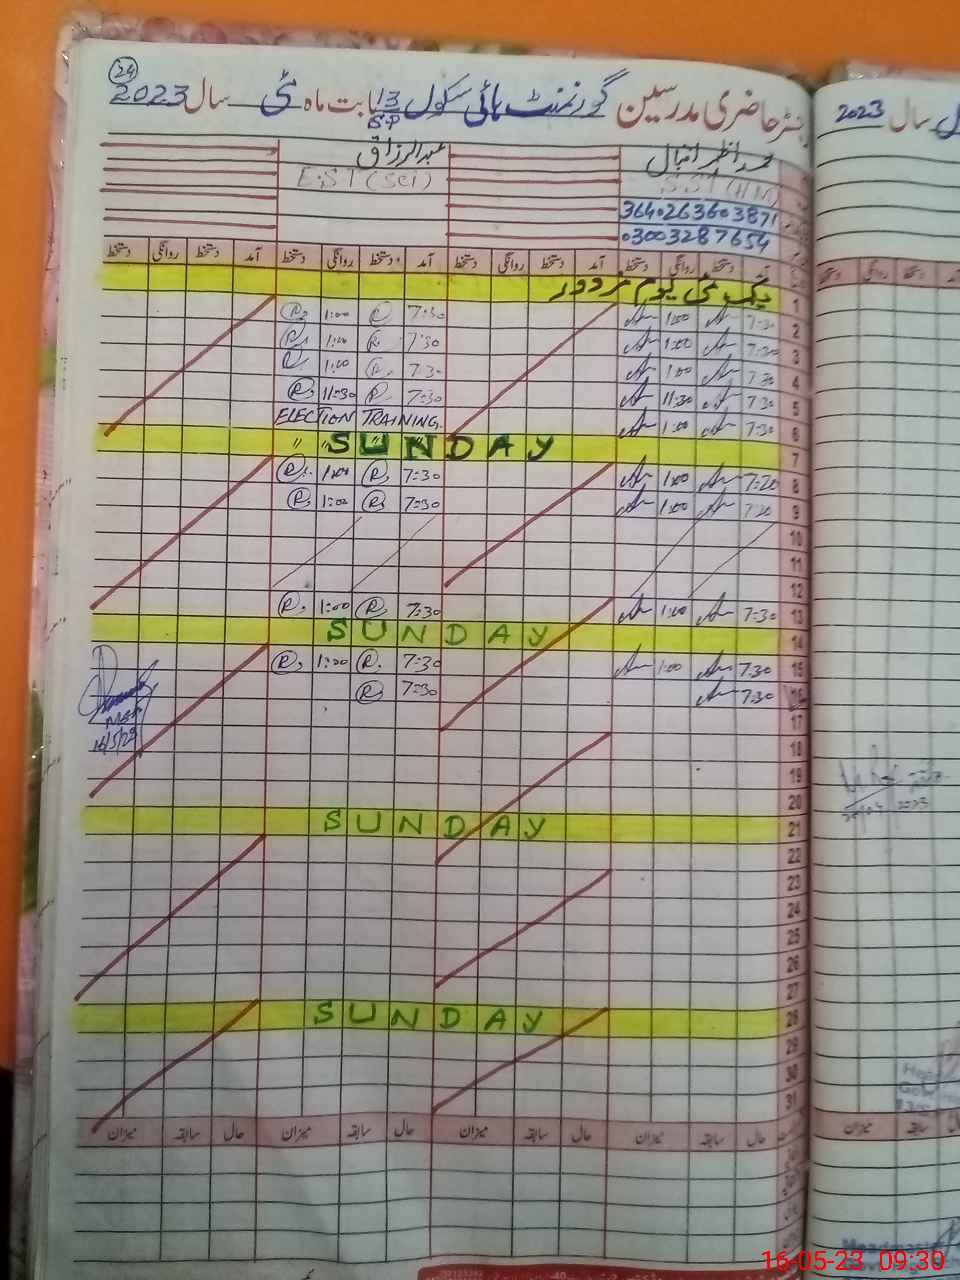 24
رجسٹر حاضری مدرسین گورنمنٹ ہائی سکول 13/SP بابت ماہ مئی سال 2023
محمد اظہر اقبال عبدالرزاق
S.S.T (H/M) E.S.T (Sci)
3640263603871
03003287654
آمد دستخط روانگی دستخط آمد دستخط روانگی دستخط آمد دستخط روانگی دستخط آمد دستخط روانگی دستخط
یکم مئی یوم مزدور
1
2 7:30 1:00 7:30 1:00
3 7:30 1:00 7:30 1:00
4 7:30 1:00 7:30 1:00
5 7:30 11:30 7:30 11:30
6 7:30 1:00 ELECTION TRAINING.
7 SUNDAY
8 7:20 1:00 7:30 1:00
9 7:20 1:00 7:30 1:00
10
11
12
13 7:30 1:00 7:30 1:00
14 SUNDAY
15 7:30 1:00 7:30 1:00
16 7:30 7:30
16/5/23
17
18
19
20
21 SUNDAY
22
23
24
25
26
27
28 SUNDAY
29
30
31
حال سابقہ میزان حال سابقہ میزان حال سابقہ میزان حال سابقہ میزان
سال 2023
دستخط روانگی دستخط آمد
2023
سابقہ میزان
Headmaster
16-05-23 09:30